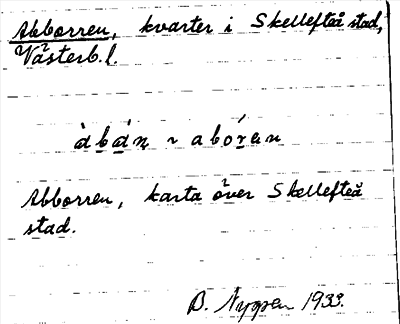 Abborren, kvarter i Skellefteå stad,
Västerb. l.
àbàn ~ abóren
Abborren, karta över Skellefteå
stad.
B. Nygren 1933.